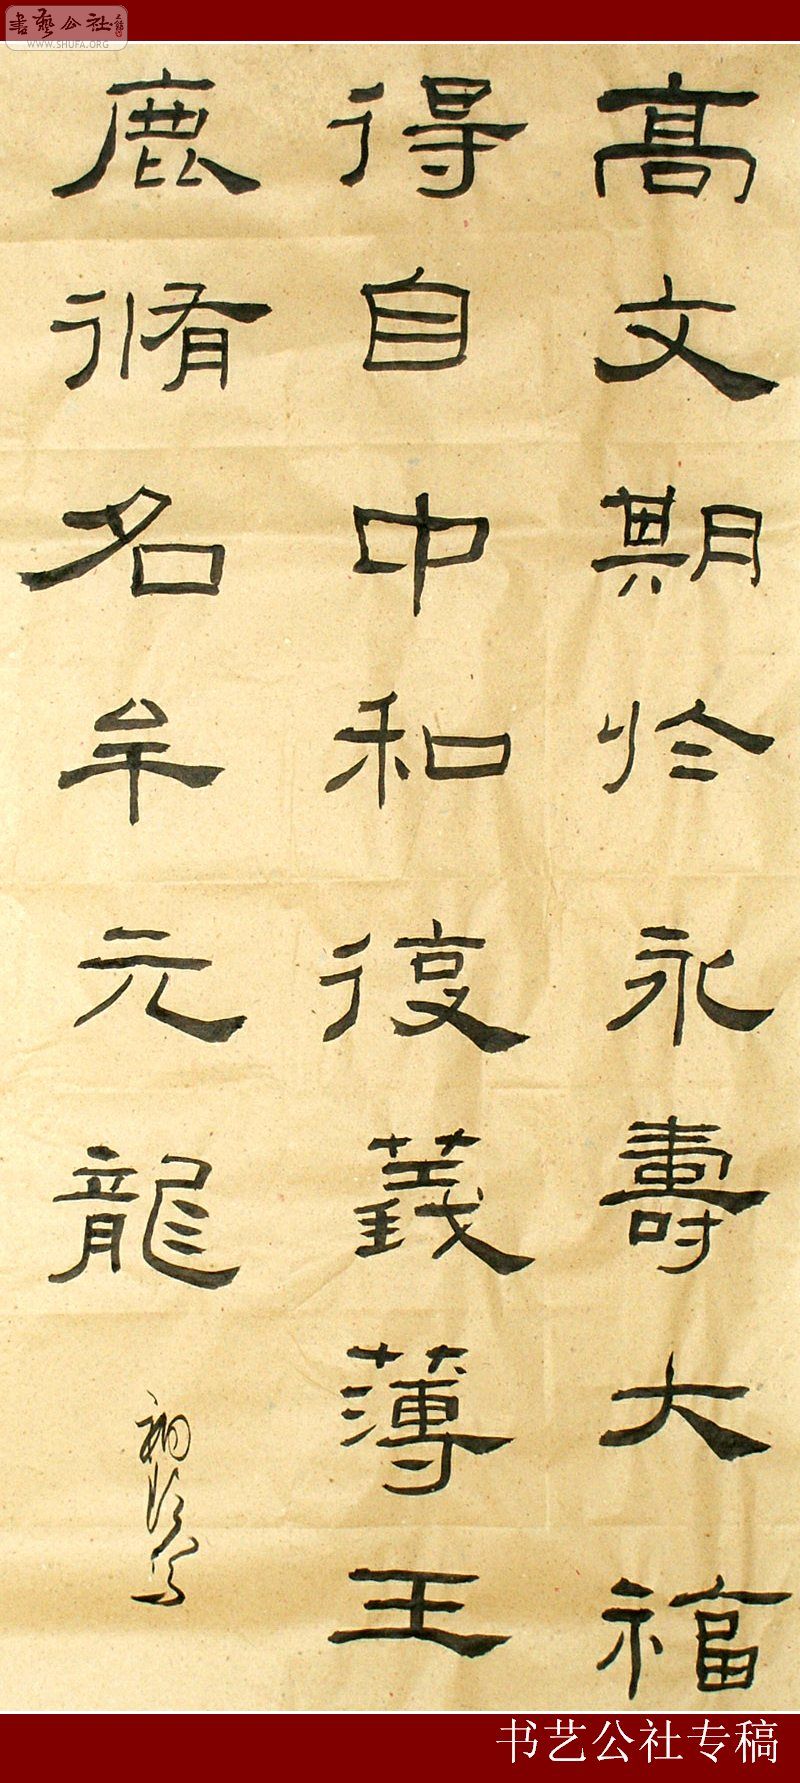 书艺公社
WWW.SHUFA.ORG
高文期忴永壽大福
得自中和復義薄王
鹿脩名牟元龍
书艺公社专稿